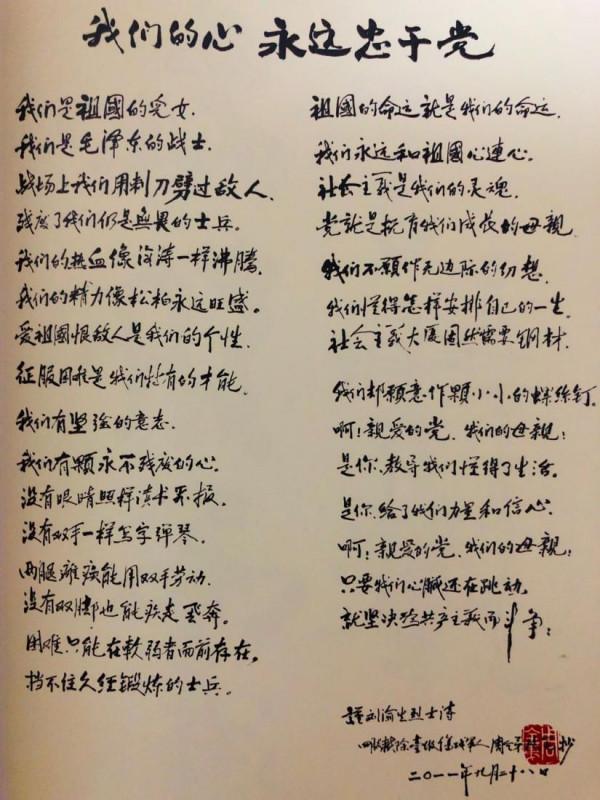 我们的心 永远忠于党
我们是祖國的兒女.
我们是毛泽东的战士.
战场上我们用刺刀劈过敌人.
残废了我们仍是無畏的士兵.
我们的热血像海涛一样沸腾.
我们的精力像松柏永远旺盛。
爱祖國恨敌人是我们的个性.
征服困难是我们特有的才能.
我们有坚强的意志.
我们有颗永不残废的心.
没有眼睛照样读书看报.
没有双手一样写字弹琴.
两腿瘫痪能用双手劳动.
没有双脚也能疾走飛奔。
困难只能在軟弱者面前存在。
挡不住久经鍛炼的士兵。
祖國的命运就是我们的命运.
我们永远和祖國心連心.
社会主義是我们的灵魂.
党就是抚育我们成長的母親
我们不願作无边际的幻想.
我们懂得怎样安排自己的一生.
社会主義大厦固然需要钢材.
我们都願意作颗小小的螺丝钉.
啊!親爱的党.我们的母親!
是你.教导我们懂得了生活.
是你.给了我们力量和信心.
啊!親爱的党.我们的母親!
只要我们心臟还在跳动.
就坚决为共产主義而斗争!
刘渝生烈士诗
军人 周 抄
二〇一一年九月二十八日